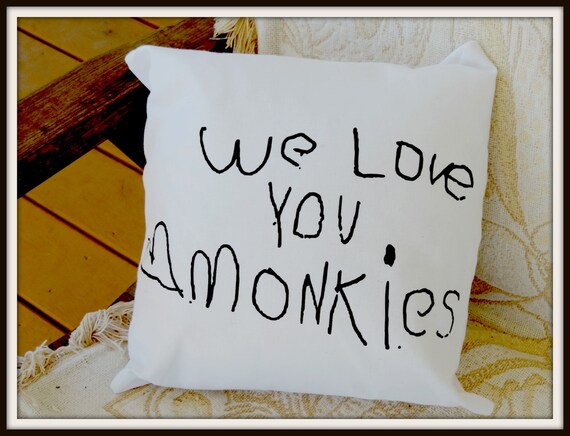 We Love
You
Amonkies